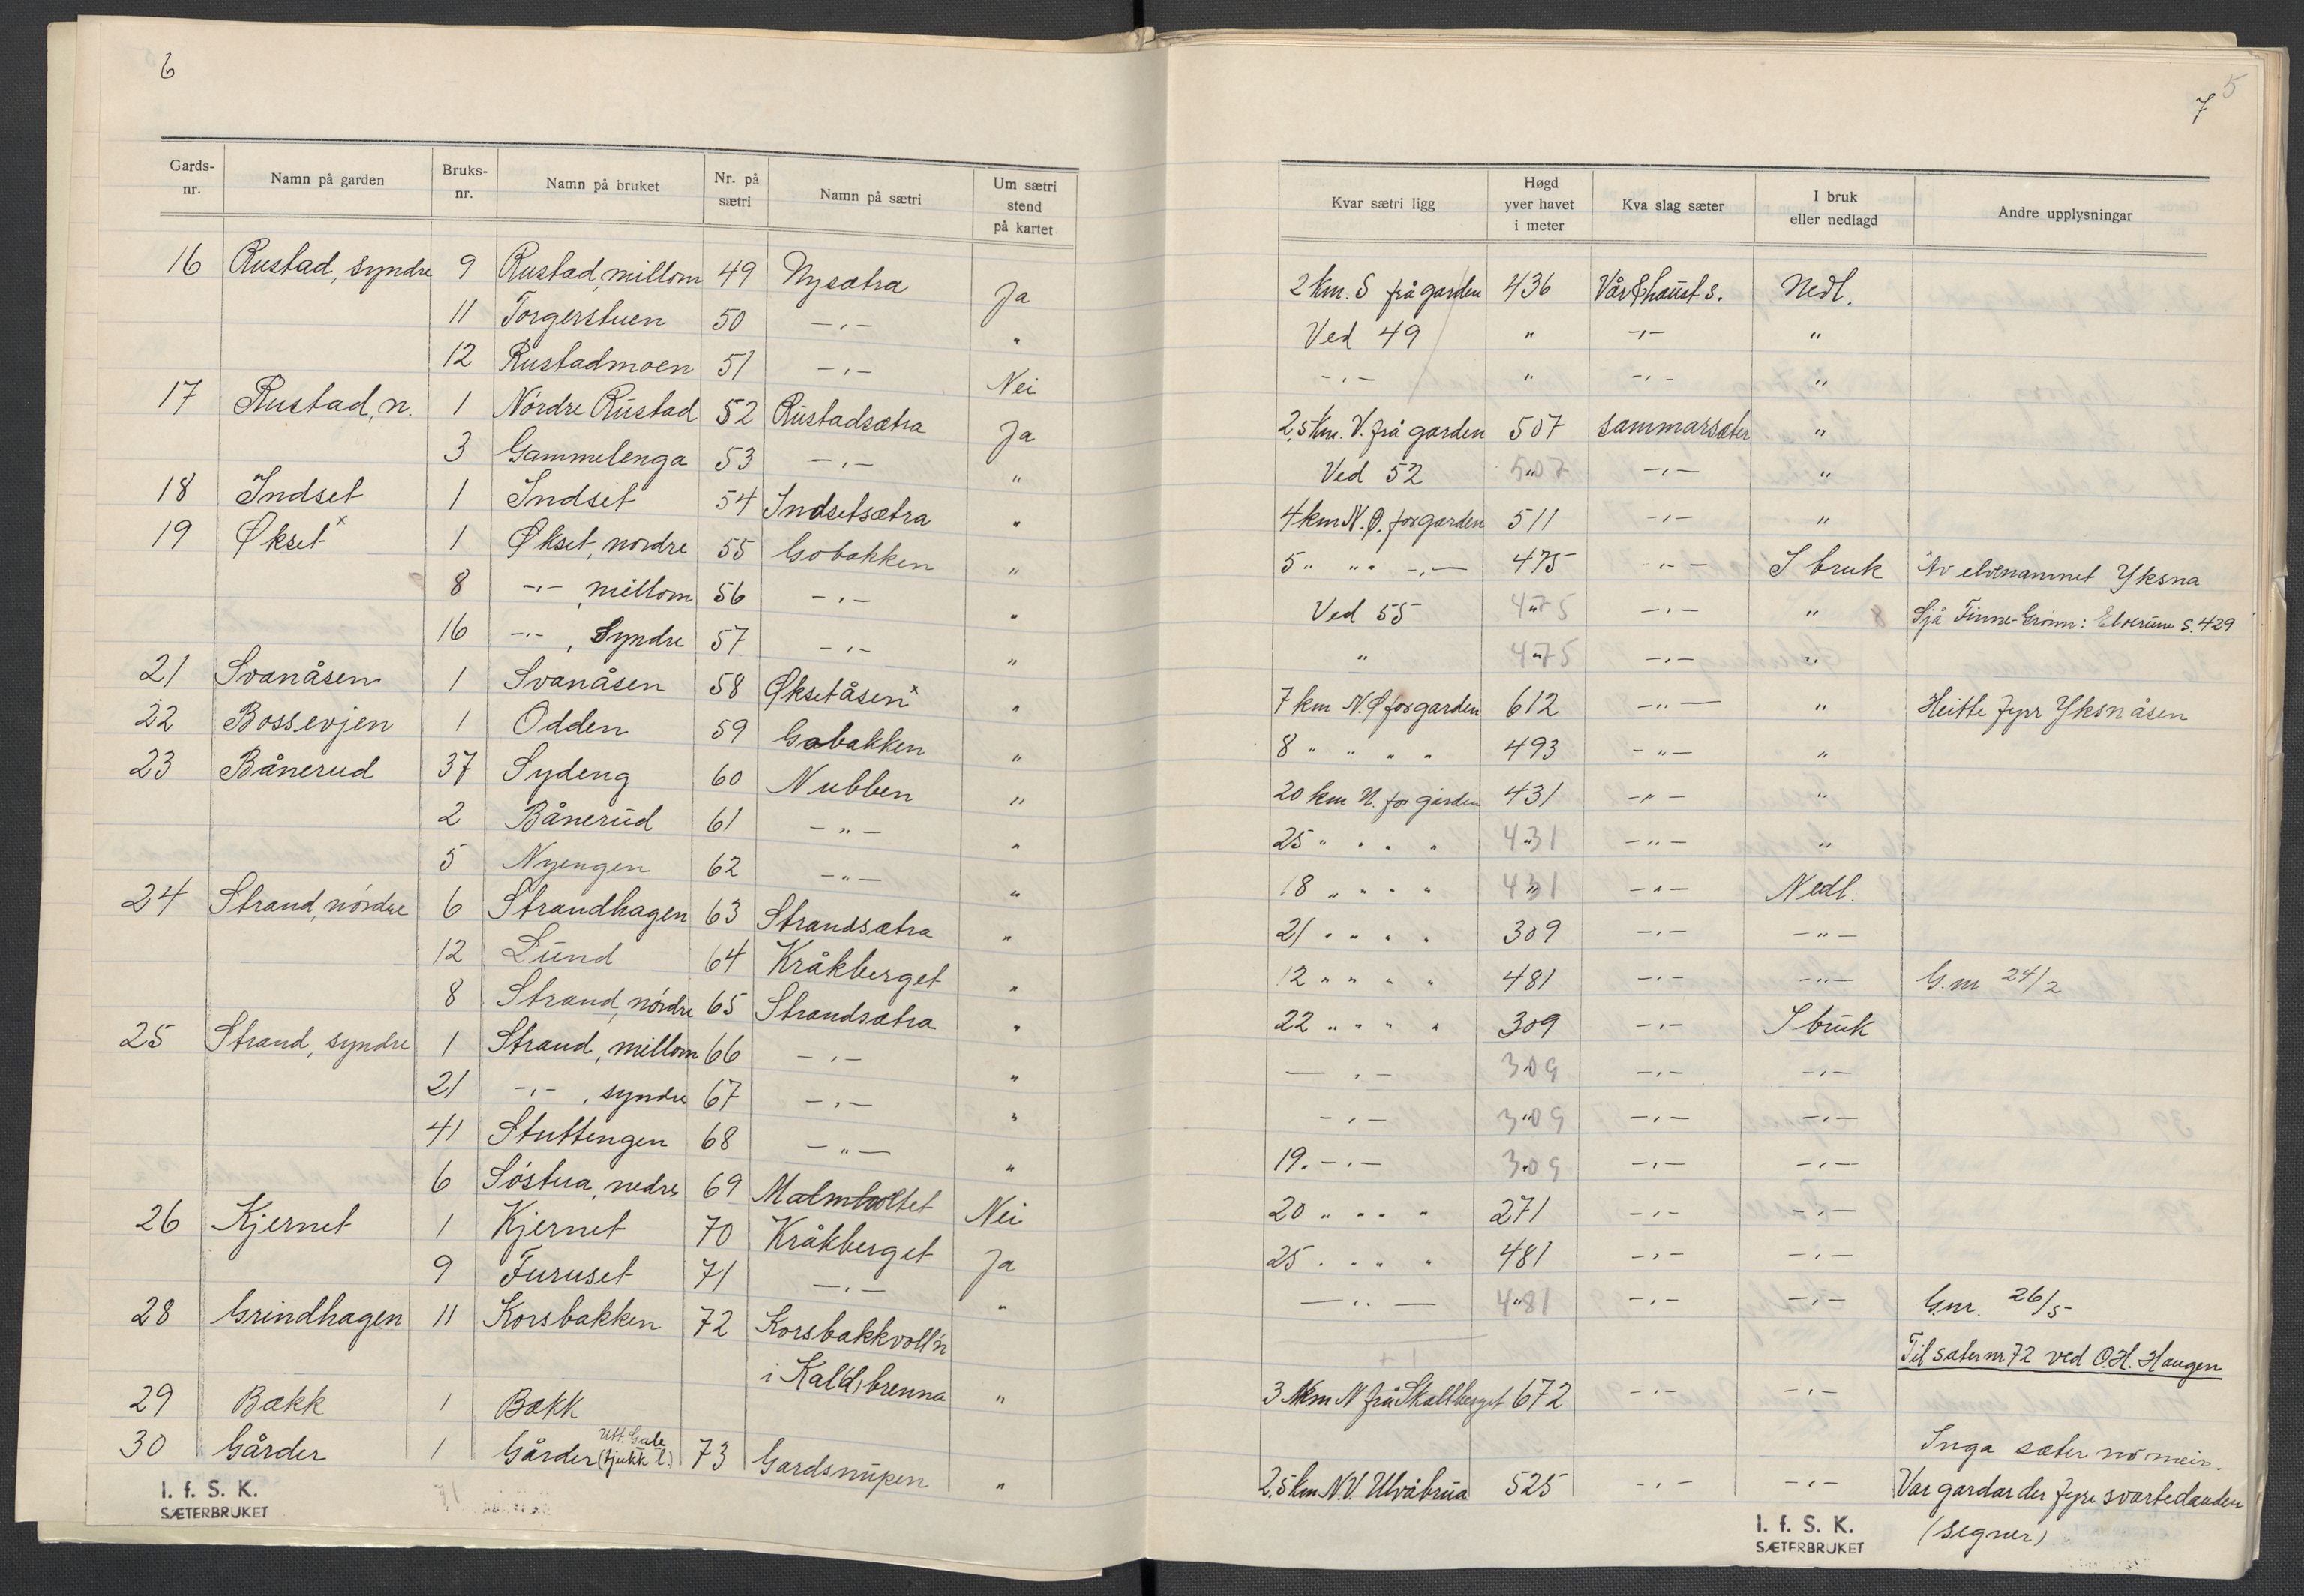 6
Gards-nr. Namn på garden Bruks-nr. Namn på bruket Nr. på sætri Namn på sætri Um sætri stend på kartet
16 Rustad, syndre 9 Rustad, millom 49 Nysætra Ja
11 Torgerstuen 50 -"- "
12 Rustadmoen 51 -"- Nei
17 Rustad, n. 1 Nordre Rustad 52 Rustadsætra Ja
3 Gammelenga 53 -"- "
18 Indset 1 Indset 54 Indsetsætra "
19 Økset x 1 Økset, nordre 55 Gobakken "
8 -"-, millom 56 -"- "
16 -"-, Syndre 57 -"- "
21 Svanåsen 1 Svanåsen 58 Øksetåsen x "
22 Bossevjen 1 Odden 59 Gobakken "
23 Bånerud 37 Sydeng 60 Nubben "
2 Bånerud 61 -"- "
5 Nyengen 62 -"- "
24 Strand, nordre 6 Strandhagen 63 Strandsætra "
12 Lund 64 Kråkberget "
8 Strand, nordre 65 Strandsætra "
25 Strand, syndre 1 Strand, millom 66 -"- "
21 -"-, syndre 67 -"- "
41 Stuttengen 68 -"- "
6 Søstua, nedre 69 Nei
26 Kjernet 1 Kjernet 70 Kråkberget Ja
9 Furuset 71 -"- "
28 Grindhagen 11 Korsbakken 72 Korsbakkvoll'n
i Kal(d)brenna "
29 Bækk 1 Bækk
30 Gårder 1 Gårder Utt. Gale (tjukk l.) 73 Gardsnupen "
I. f. S. K.
SÆTERBRUKET
7 5
Kvar sætri ligg Høgd yver havet i meter Kva slag sæter I bruk eller nedlagd Andre upplysningar
2 km. S frå garden 436 Vår & haust s. Nedl.
Ved 49 " -"- "
-"- " -"- "
2,5 km. V. frå garden 507 sommarsæter "
Ved 52 507 -"- "
4 km N.Ø. for garden 511 -"- "
5 " " " -"- 475 -"- I bruk Av elvenamnet Yksna
Ved 55 475 -"- " Sjå Finne-Grønn: Elverum S. 429
" 475 -"- "
7 km N.Ø for garden 612 -"- " Heitte fyrr Yksnåsen
8 " " " " 493 -"- "
20 km N. for garden 431 -"- "
25 " " " " 431 -"- "
18 " " " " 431 -"- Nedl.
21 " " " " 309 -"- -"-
12 " " " " 481 -"- -"- G.nr 24/2
22 " " " " 309 -"- I bruk
-"- 309 -"- -"-
-"- 309 -"- -"-
19. -"- 309 -"- -"-
20 " " " " 271 -"- -"-
25 " " " " 481 -"- -"-
-"- 481 -"- -"- Gnr. 26/5
Til sæter nr 72 ved O.H. Haugen
3 km N frå Skallberget 672 -"- -"-
Inga sæter no meir.
2.5 km N.V. Ulvåbrua 525 -"- -"- Var gardar der fyre svartedauden
(segner)
I. f. S. K.
SÆTERBRUKET